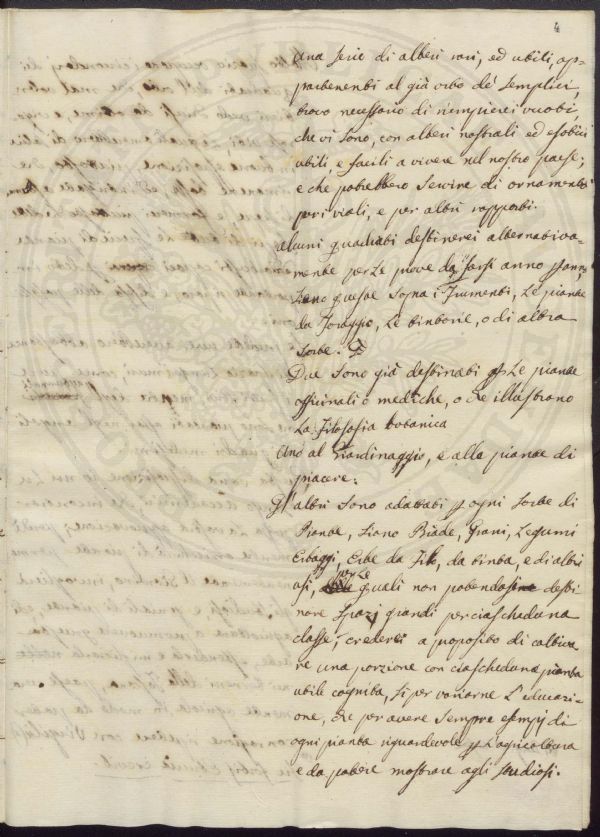 4
Una serie di alberi rari, ed utili, ap-
partenenti al già orto de' semplici,
trovo necessario di riempierei vuoti,
che vi sono, con alberi nostrali ed esotici
utili, e facili a vivere nel nostro paese;
e che potrebbero servire di ornamento
per i viali, e per altri rapporti.
Alcuni quadrati destinerei alternativa-
mente per le prove da farsi anno p anno,
siano queste sopra i Frumenti, le piante
da Foraggio, le tintorie, o di altra
sorte.
Due sono già destinati p le piante
officinali o mediche, o che illustrano
la Filosofia botanica
Uno al Giardinaggio, e alle piante di
piacere.
Gl'altri sono adattati p ogni sorte di
Piante, siano Biade, Grani, Legumi
Erbaggi, Erbe da Filo, da tinta, e di altri
usi, per le quali non potendosi desti
nare spazi grandi per ciascheduna
classe, crederei a proposito di coltiva
re una porzione con ciascheduna pianta
utile cognita, si per variarne l'educazi-
one, che per avere sempre esempj di
ogni pianta riguardevole p l'agricoltura
e da potere mostrare agli studiosi.